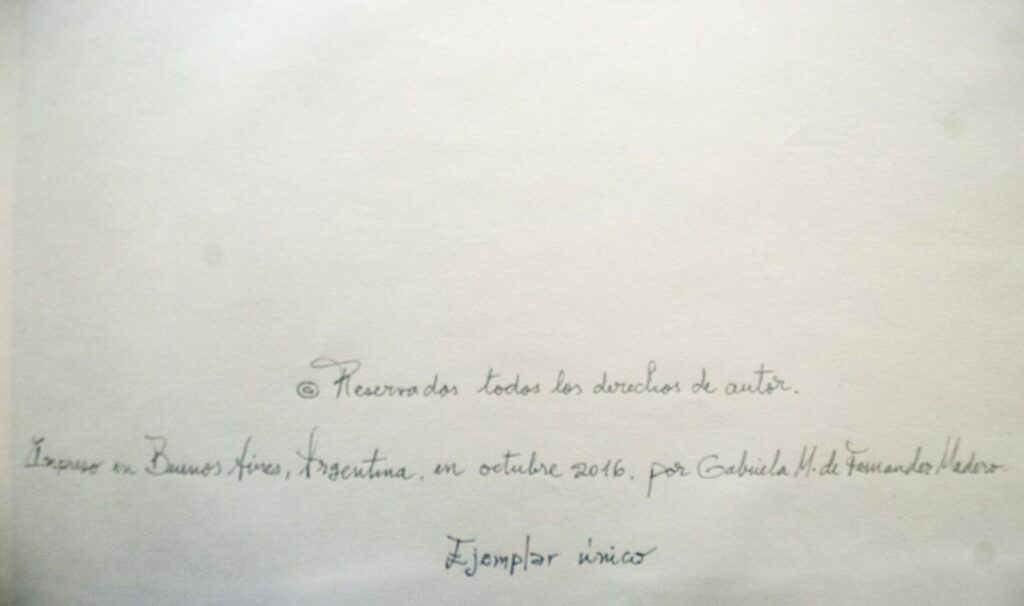 © Reservados todos los derechos de autor.
Impreso en Buenos Aires, Argentina, en octubre 2016, por Gabriela M. de Fernandez Madero.
Ejemplar único